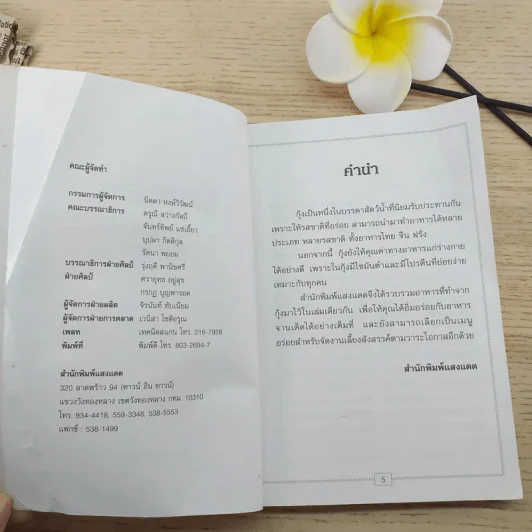 คณะผู้จัดทำ
กรรมการผู้จัดการ นิดดา หงษ์วิวัฒน์
คณะบรรณาธิการ ดรุณี สว่างกัลป์
จันทร์ทิพย์ แซ่เอี้ยว
บุปผา กิตติกุล
รัตนา พยอม
บรรณาธิการฝ่ายศิลป์ รุ่งฤดี พานิชศรี
ฝ่ายศิลป์ ศรายุทธ อยู่สุร
กรกฎ บุญพารอด
ผู้จัดการฝ่ายผลิต จิรนันท์ ทับเนียม
ผู้จัดการฝ่ายการตลาด เวนิสา โชติอรุณ
เพลท เทคนิคสแกน โทร. 216-7928
พิมพ์ที่ พิมพ์ดี โทร. 803-2694-7
สำนักพิมพ์แสงแดด
320 ลาดพร้าว 94 (ทาวน์ อิน ทาวน์)
แขวงวังทองหลาง เขตวังทองหลาง กทม. 10310
โทร. 934-4418, 559-3348, 538-5553
แฟกซ์ : 538-1499
คำนำ
กุ้งเป็นหนึ่งในบรรดาสัตว์น้ำที่นิยมรับประทานกัน
เพราะให้รสชาติที่อร่อย สามารถนำมาทำอาหารได้หลาย
ประเภท หลายรสชาติ ทั้งอาหารไทย จีน ฝรั่ง
นอกจากนี้ กุ้งยังให้คุณค่าทางอาหารแก่ร่างกาย
ได้อย่างดี เพราะในกุ้งมีไขมันต่ำและมีโปรตีนที่ย่อยง่าย
เหมาะกับทุกคน
สำนักพิมพ์แสงแดดจึงได้รวบรวมอาหารที่ทำจาก
กุ้งมาไว้ในเล่มเดียวกัน เพื่อให้คุณได้อิ่มอร่อยกับอาหาร
จานเด็ดได้อย่างเต็มที่ และยังสามารถเลือกเป็นเมนู
อร่อยสำหรับจัดงานเลี้ยงสังสรรค์ตามวาระโอกาสอีกด้วย
สำนักพิมพ์แสงแดด
5